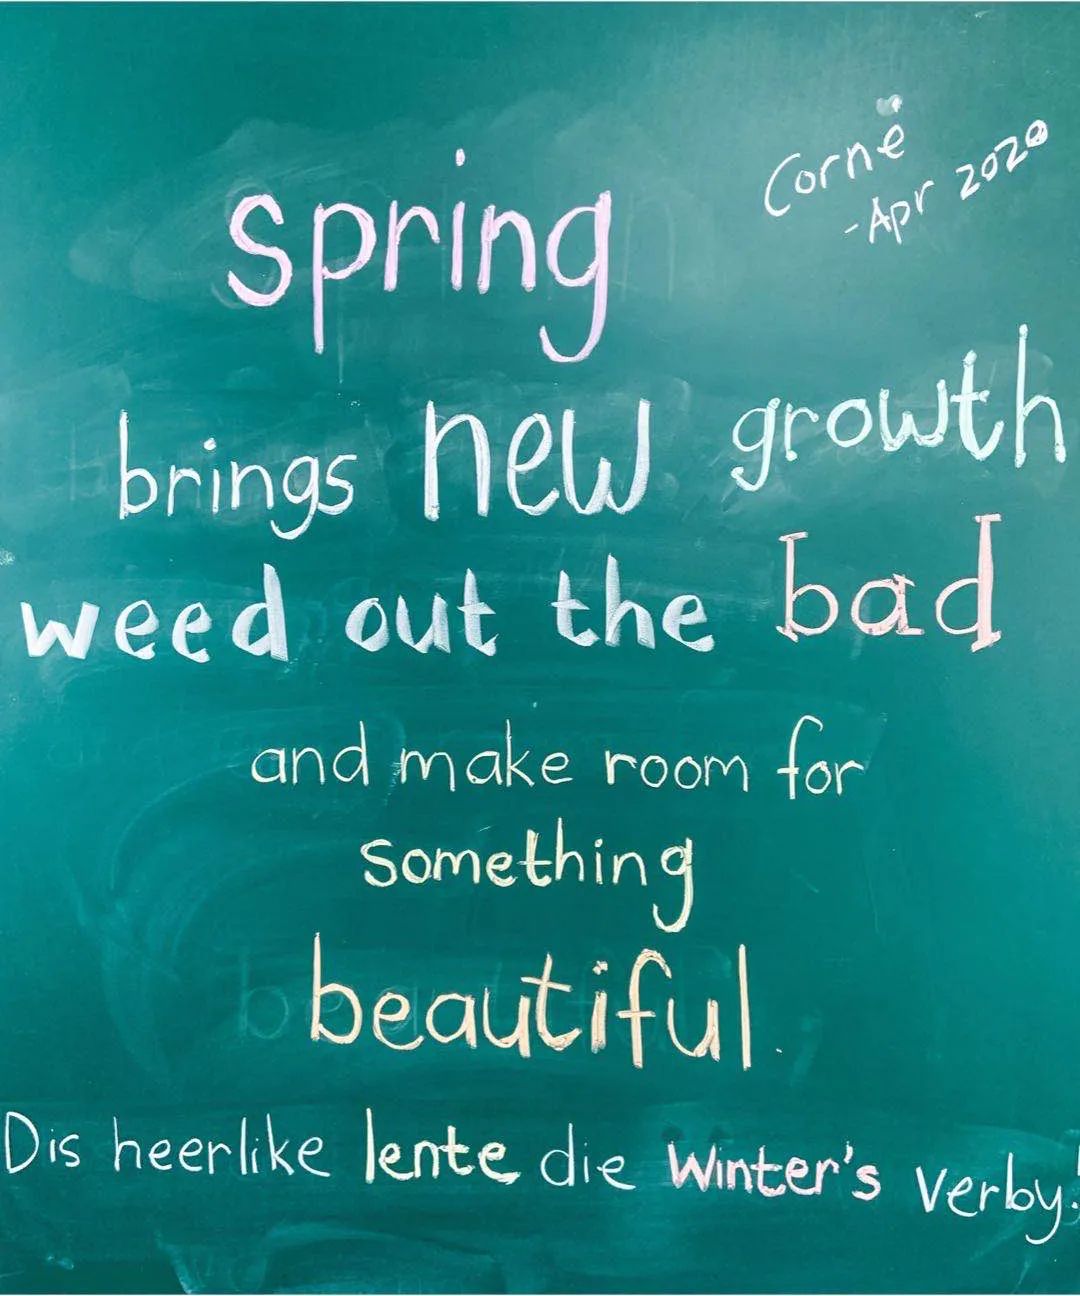 Corné
-Apr 2020
spring
brings new growth
weed out the bad
and make room for
something
beautiful.
Dis heerlike lente die Winter's verby!